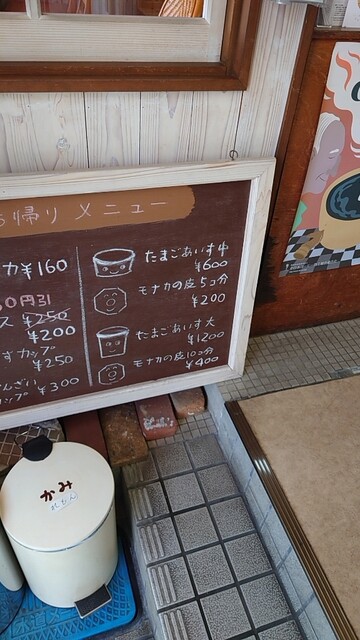 帰りメニュー
カ¥160
0円引
ス ¥250
¥200
すカップ
¥250
んざい
ップ ¥300
たまごあいす中
¥600
モナカの皮5コ分
¥200
たまごあいす大
¥1200
モナカの皮10コ分
¥400
かみ